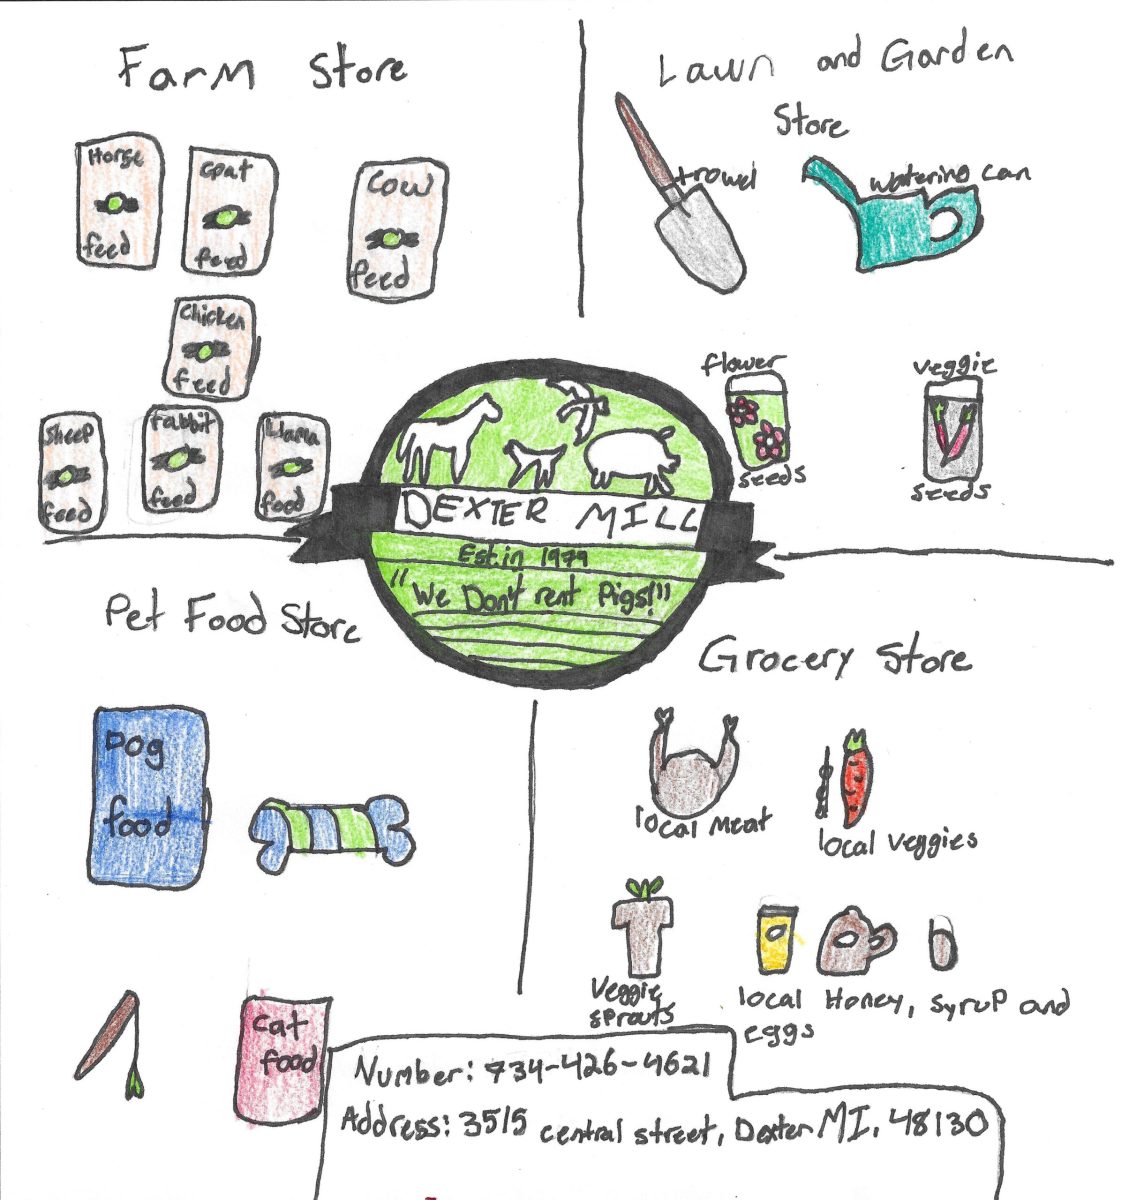 Farm Store
Horse
feed
Goat
feed
Cow
feed
Chicken
feed
Sheep
feed
rabbit
feed
Llama
food
Lawn and Garden
Store
trowel
watering can
flower
seeds
veggie
seeds
DEXTER MILL
Est.in 1979
"We Don't rent Pigs!"
Pet Food Store
Dog
food
cat
food
Grocery Store
local meat
local veggies
Veggie
sprouts
local Honey, syrup and
eggs
Number: 734-426-4621
Address: 3515 central street, Dexter MI, 48130